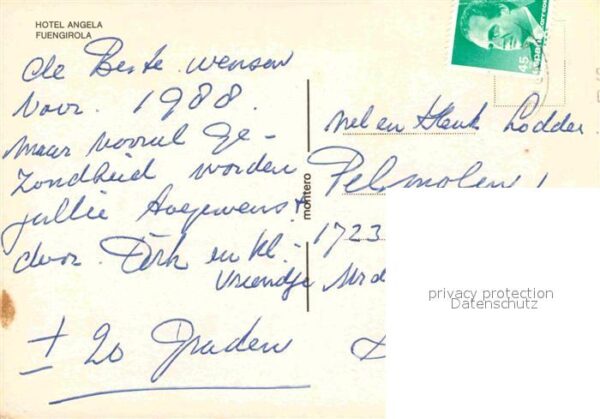 HOTEL ANGELA
FUENGIROLA
de Beste wensen
voor 1988.
maar vooral ge-
zondheid worden
jullie toegewenst
door Dirk en Kl.
vriendje
± 20 graden
montero
45
España
correos
Nel en Henk Lodder
Pelmolen 1
1723
privacy protection
Datenschutz